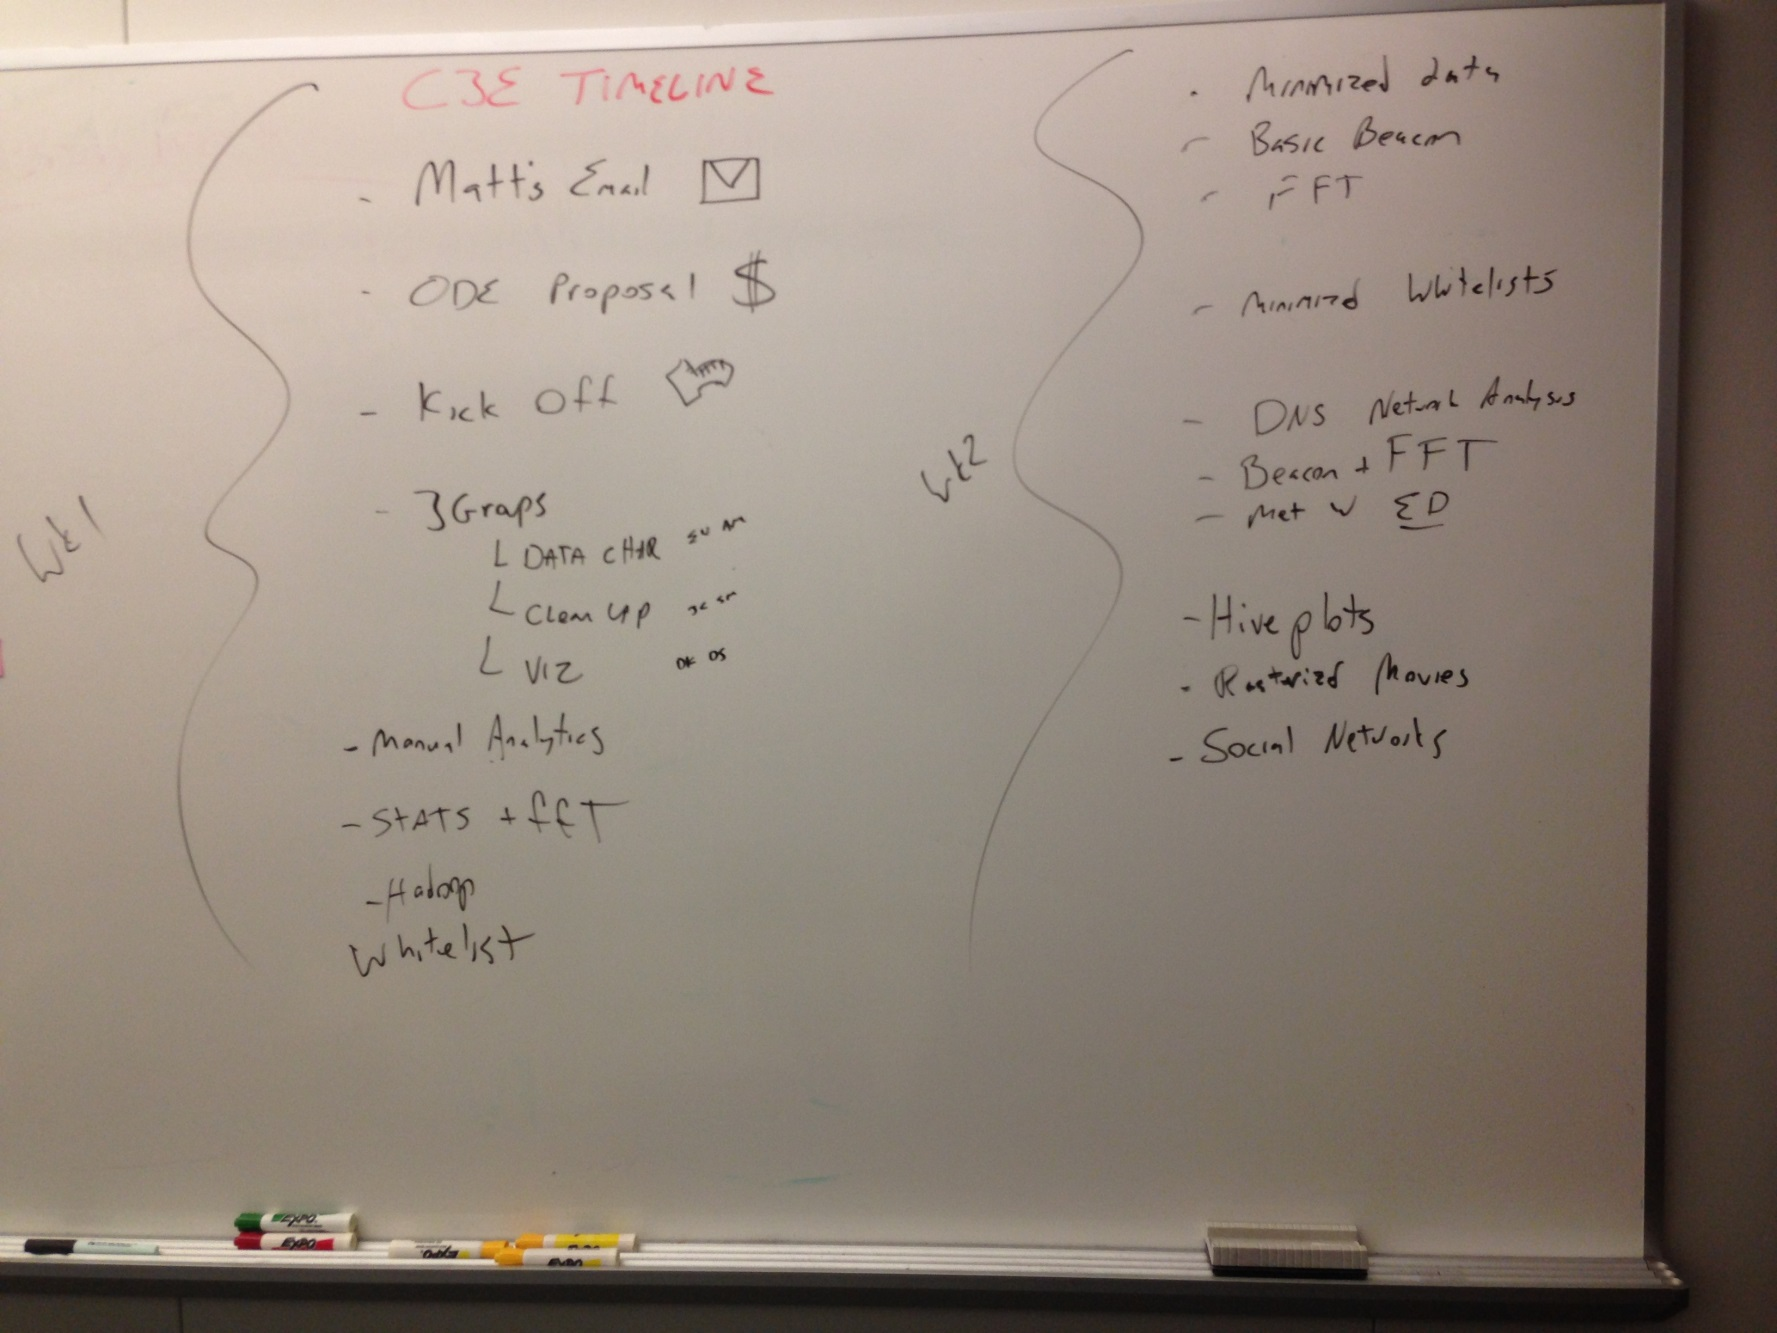 C3E TIMELINE
Wk1
- Matt's Email
- ODE Proposal $
- Kick Off
- 3 Graps
DATA CHAR
Clean up
VIZ
- Manual Analytics
- STATS + ffT
- Hadoop
Whitelist
Wk2
- Minimized data
- Basic Beacon
- FFT
- Minimized Whitelists
- DNS Network Analysis
- Beacon + FFT
- Met w ED
- Hive plots
- Rasterized Movies
- Social Networks
EXPO
EXPO
EXPO
EXPO